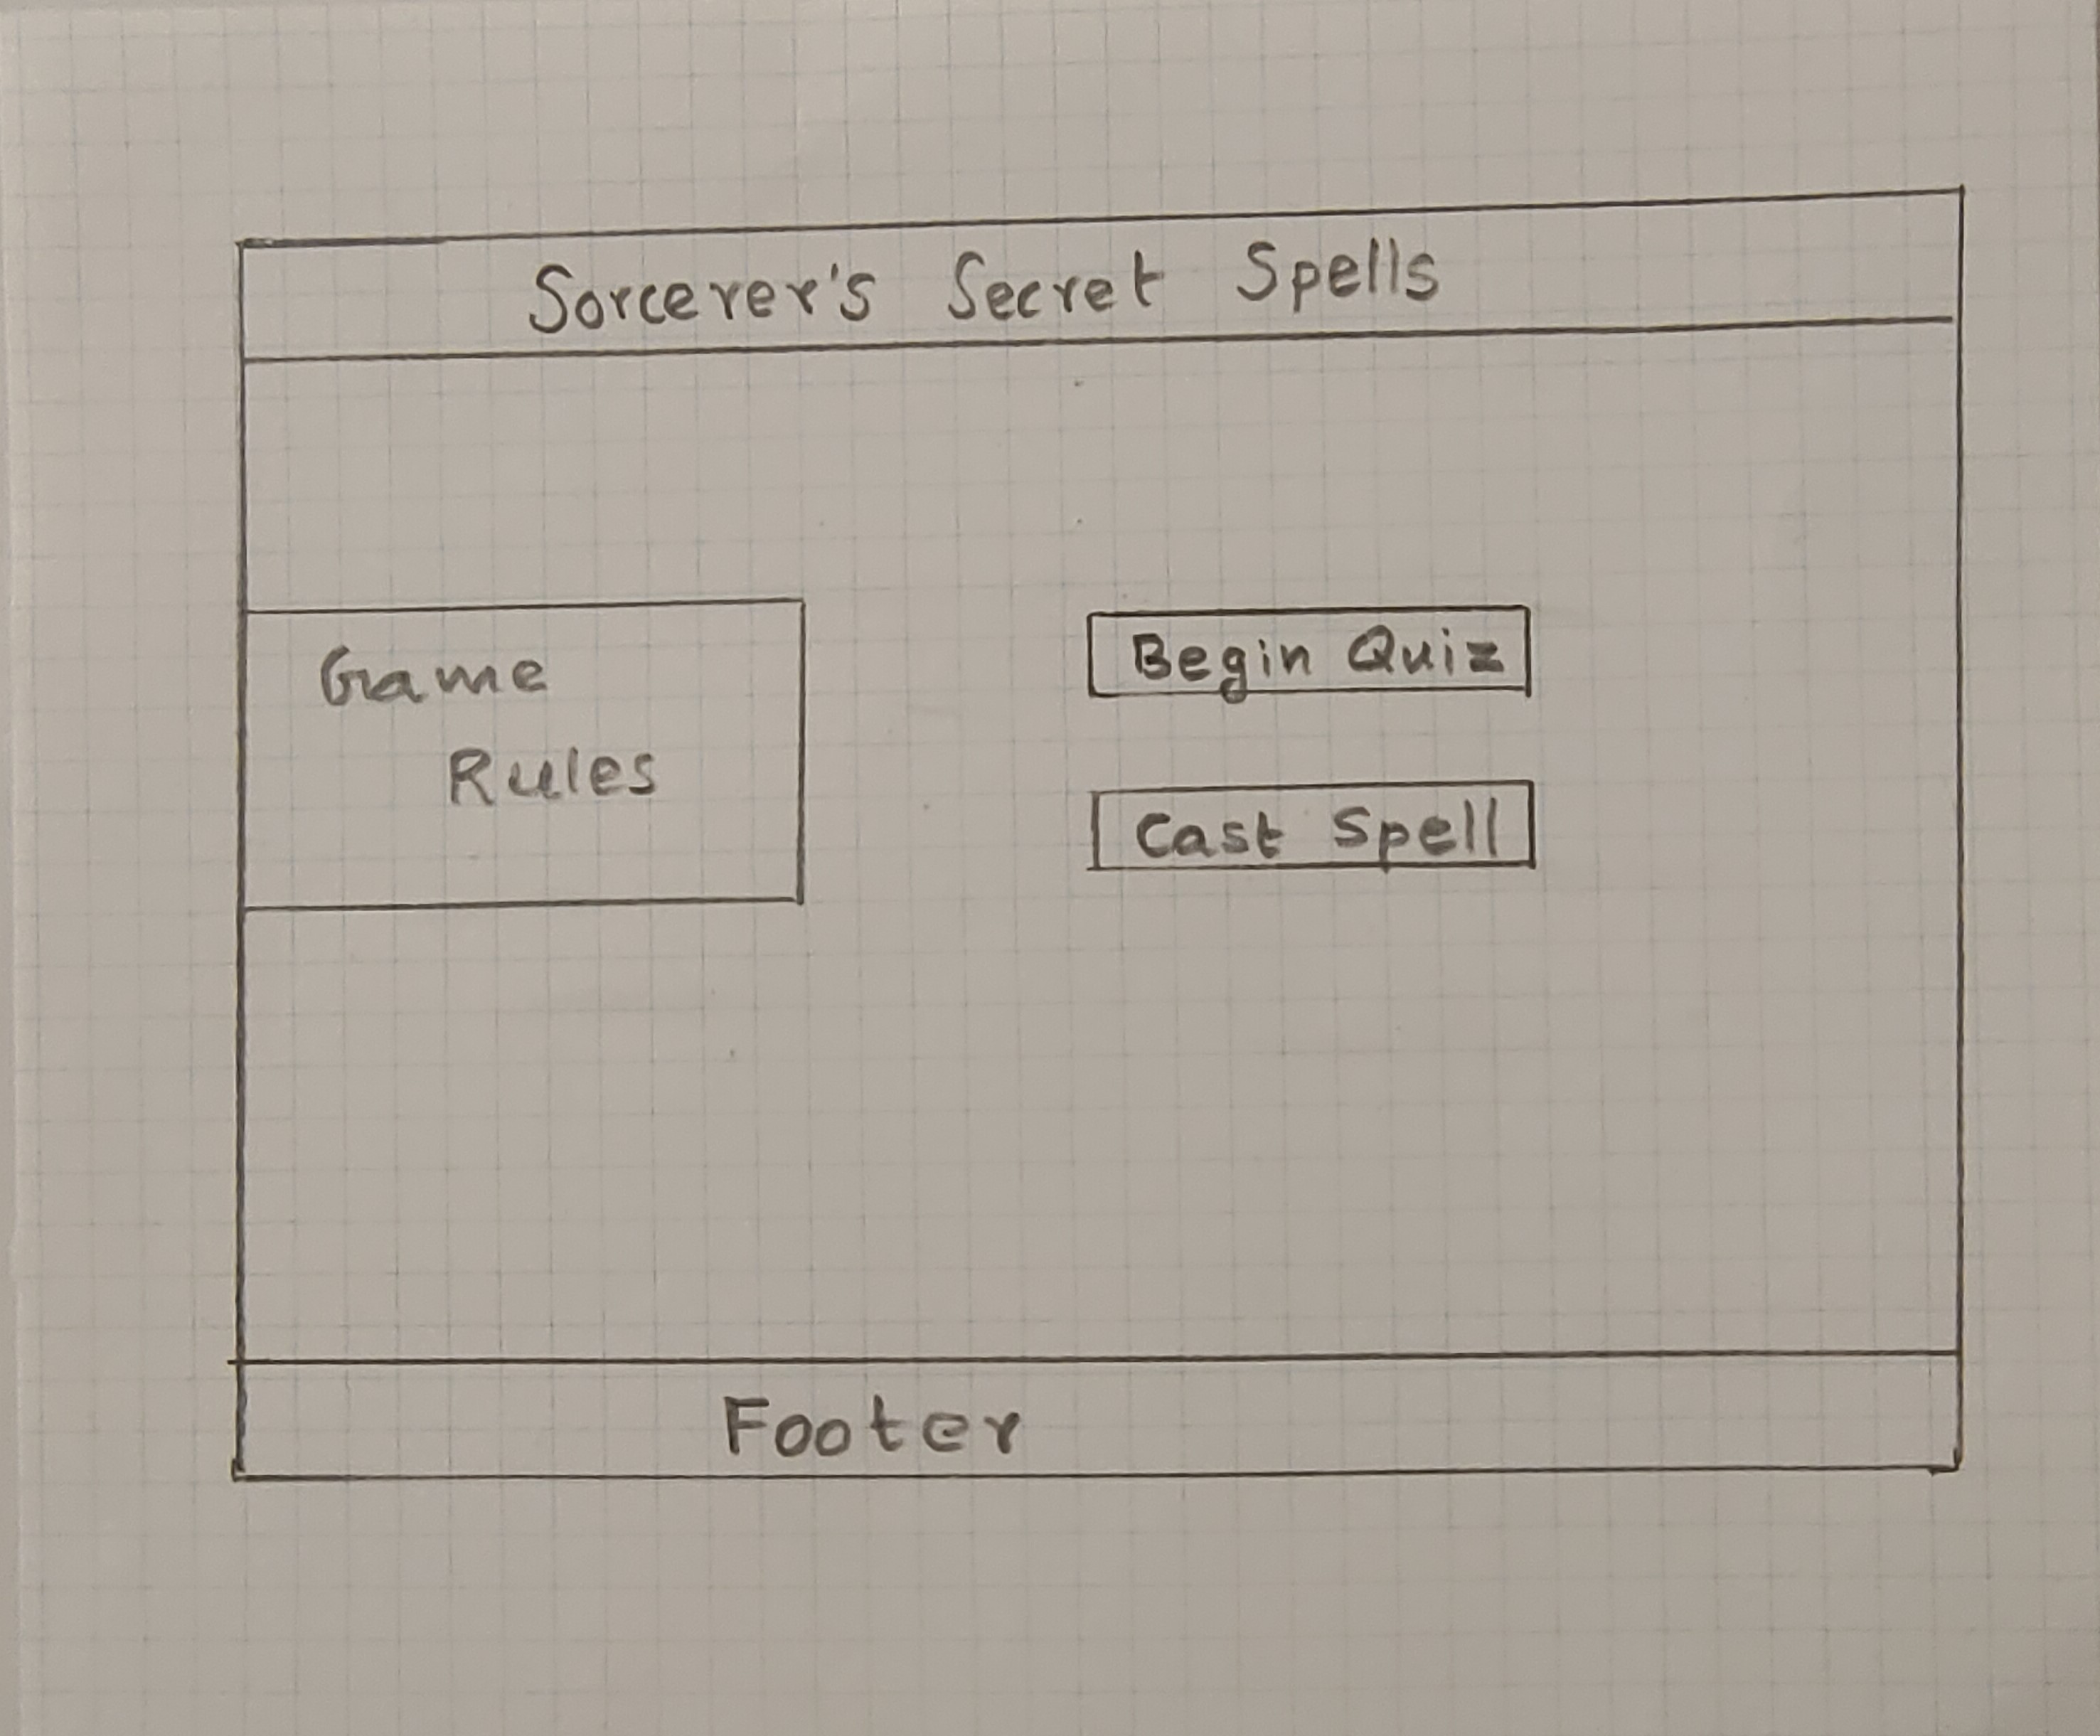 Sorcerer's Secret Spells
Game
Rules
Begin Quiz
Cast Spell
Footer